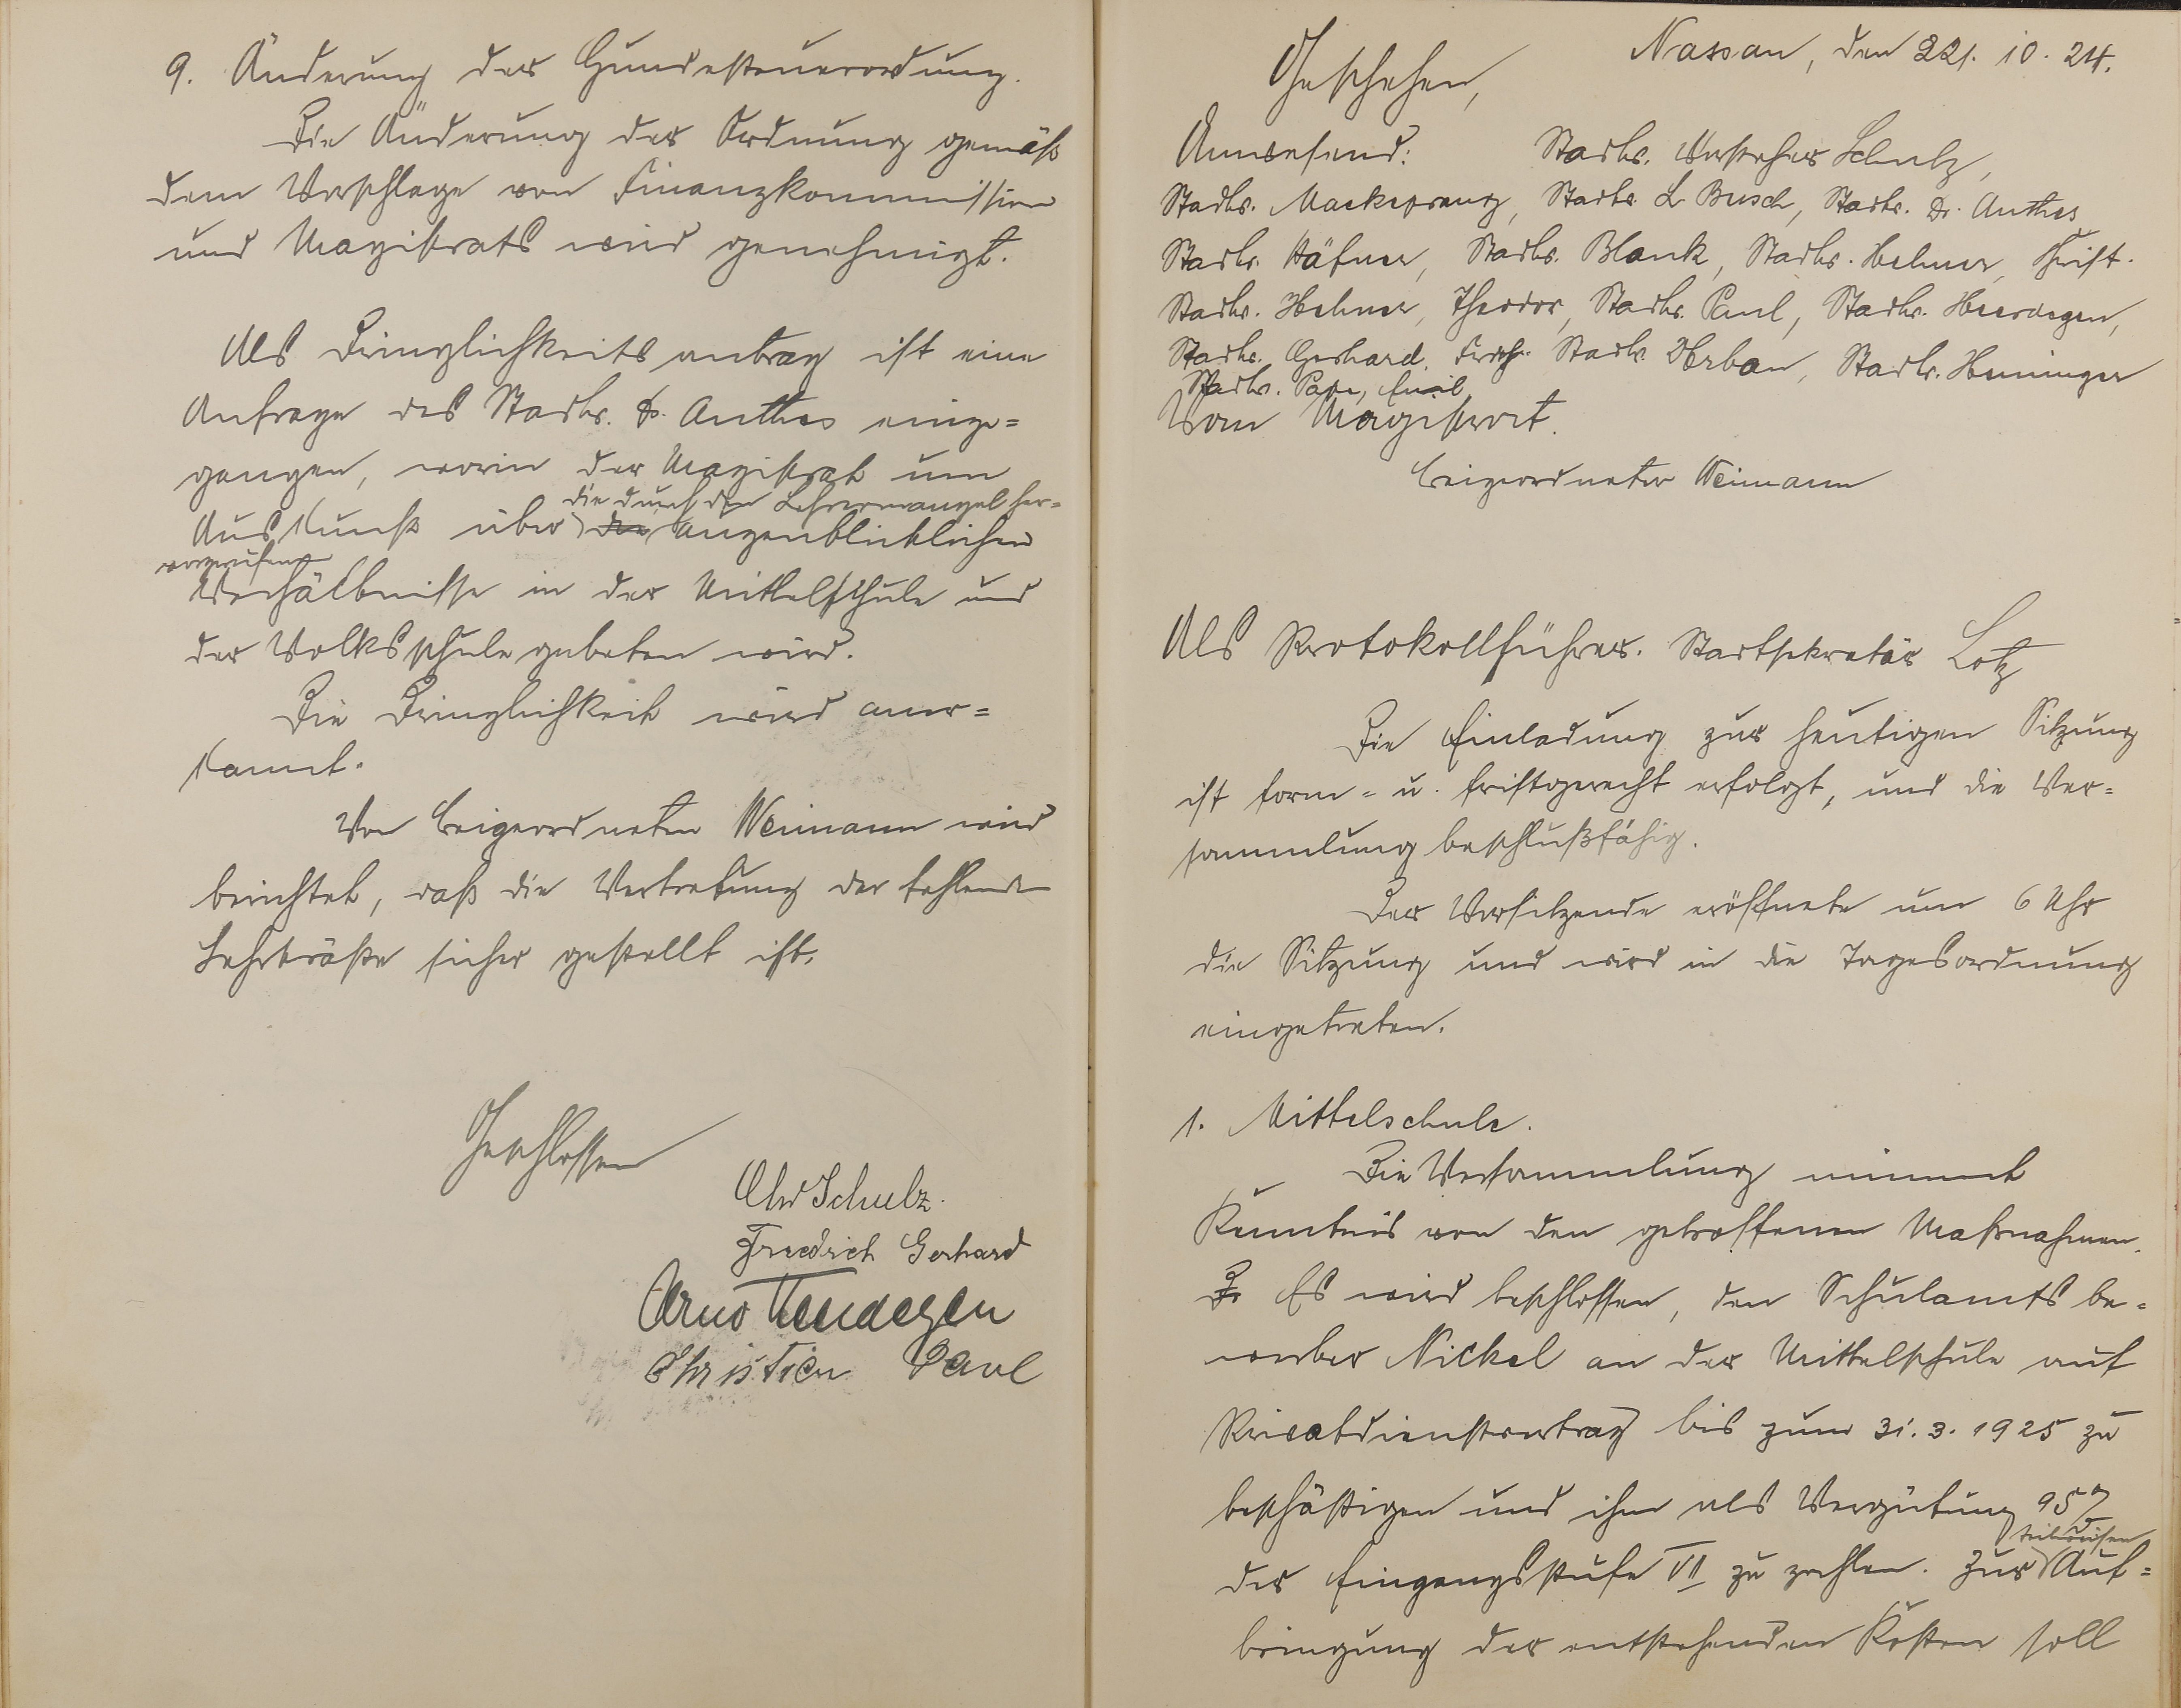 9. Änderung der Hundesteuerordnung.
Die Änderung der Ordnung gemäß
dem Vorschlage von Finanzkommission
und Magistrats wird genehmigt.
Als Dringlichkeitsantrag ist eine
Anfrage des Stadtv. Dr. Anthes einge=
gangen, worin der Magistrat um
die durch den Lehrermangel her=
Auskunft über den augenblicklichen
vorgerufenen
Verhältnisse in der Mittelschule und
der Volksschule gebeten wird.
Die Dringlichkeit wird aner=
kannt.
Von Beigeordneten Weimann wird
berichtet, daß die Vertretung der fehlenden
Lehrkräfte sicher gestellt ist.
Geschlossen
Chr Schulz.
Friedrich Gerhard
Arno Heerdegen
Christian Paul
Nassau, den 221. 10. 24.
Geschehen,
Anwesend: Stadtv. Vorsteher Schulz,
Stadtv. Mackeprang, Stadtv. Dr Busch, Stadtv. Dr. Anthes
Stadtv. Häfner, Stadtv. Blank, Stadtv. Hehner, Christ.
Stadtv. Hehner, Theodor, Stadtv. Paul, Stadtv. Heerdegen,
Stadtv. Gerhard, Friedr. Stadtv. Urban, Stadtv. Henninger
Stadtv. Pape, Emil
Vom Magistrat.
Beigeordneter Weimann
Als Protokollführer. Stadtsekretär Lotz
Die Einladung zur heutigen Sitzung
ist form- u. fristgerecht erfolgt, und die Ver=
sammlung beschlußfähig.
Der Vorsitzende eröffnete um 6 Uhr
die Sitzung und wird in die Tagesordnung
eingetreten.
1. Mittelschule.
Die Versammlung nimmt
Kenntnis von den getroffenen Maßnahmen.
Es wird beschlossen, den Schulamtsbe-
werber Nickel an der Mittelschule auf
Privatdienstvertrag bis zum 31. 3. 1925 zu
beschäftigen und ihm als Vergütung 95%
teilweisen
der Eingangsstufe VII zu zahlen. Zur Auf=
bringung der entstehenden Kosten soll